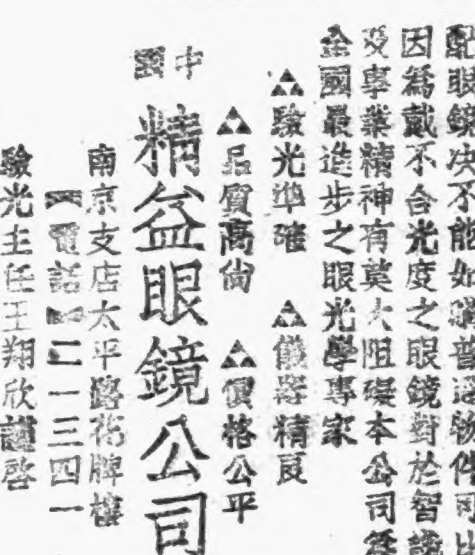 配眼鏡决不能如購普通物件可比
因爲戴不合光度之眼鏡對於智識
及事業精神有莫大阻礙本公司爲
全國最進步之眼光學專家
△驗光準確 △儀器精良
△品質高尚 △價格公平
中國
精益眼鏡公司
南京支店太平路花牌樓
電話二一三四一
驗光主任王翔欣謹啓